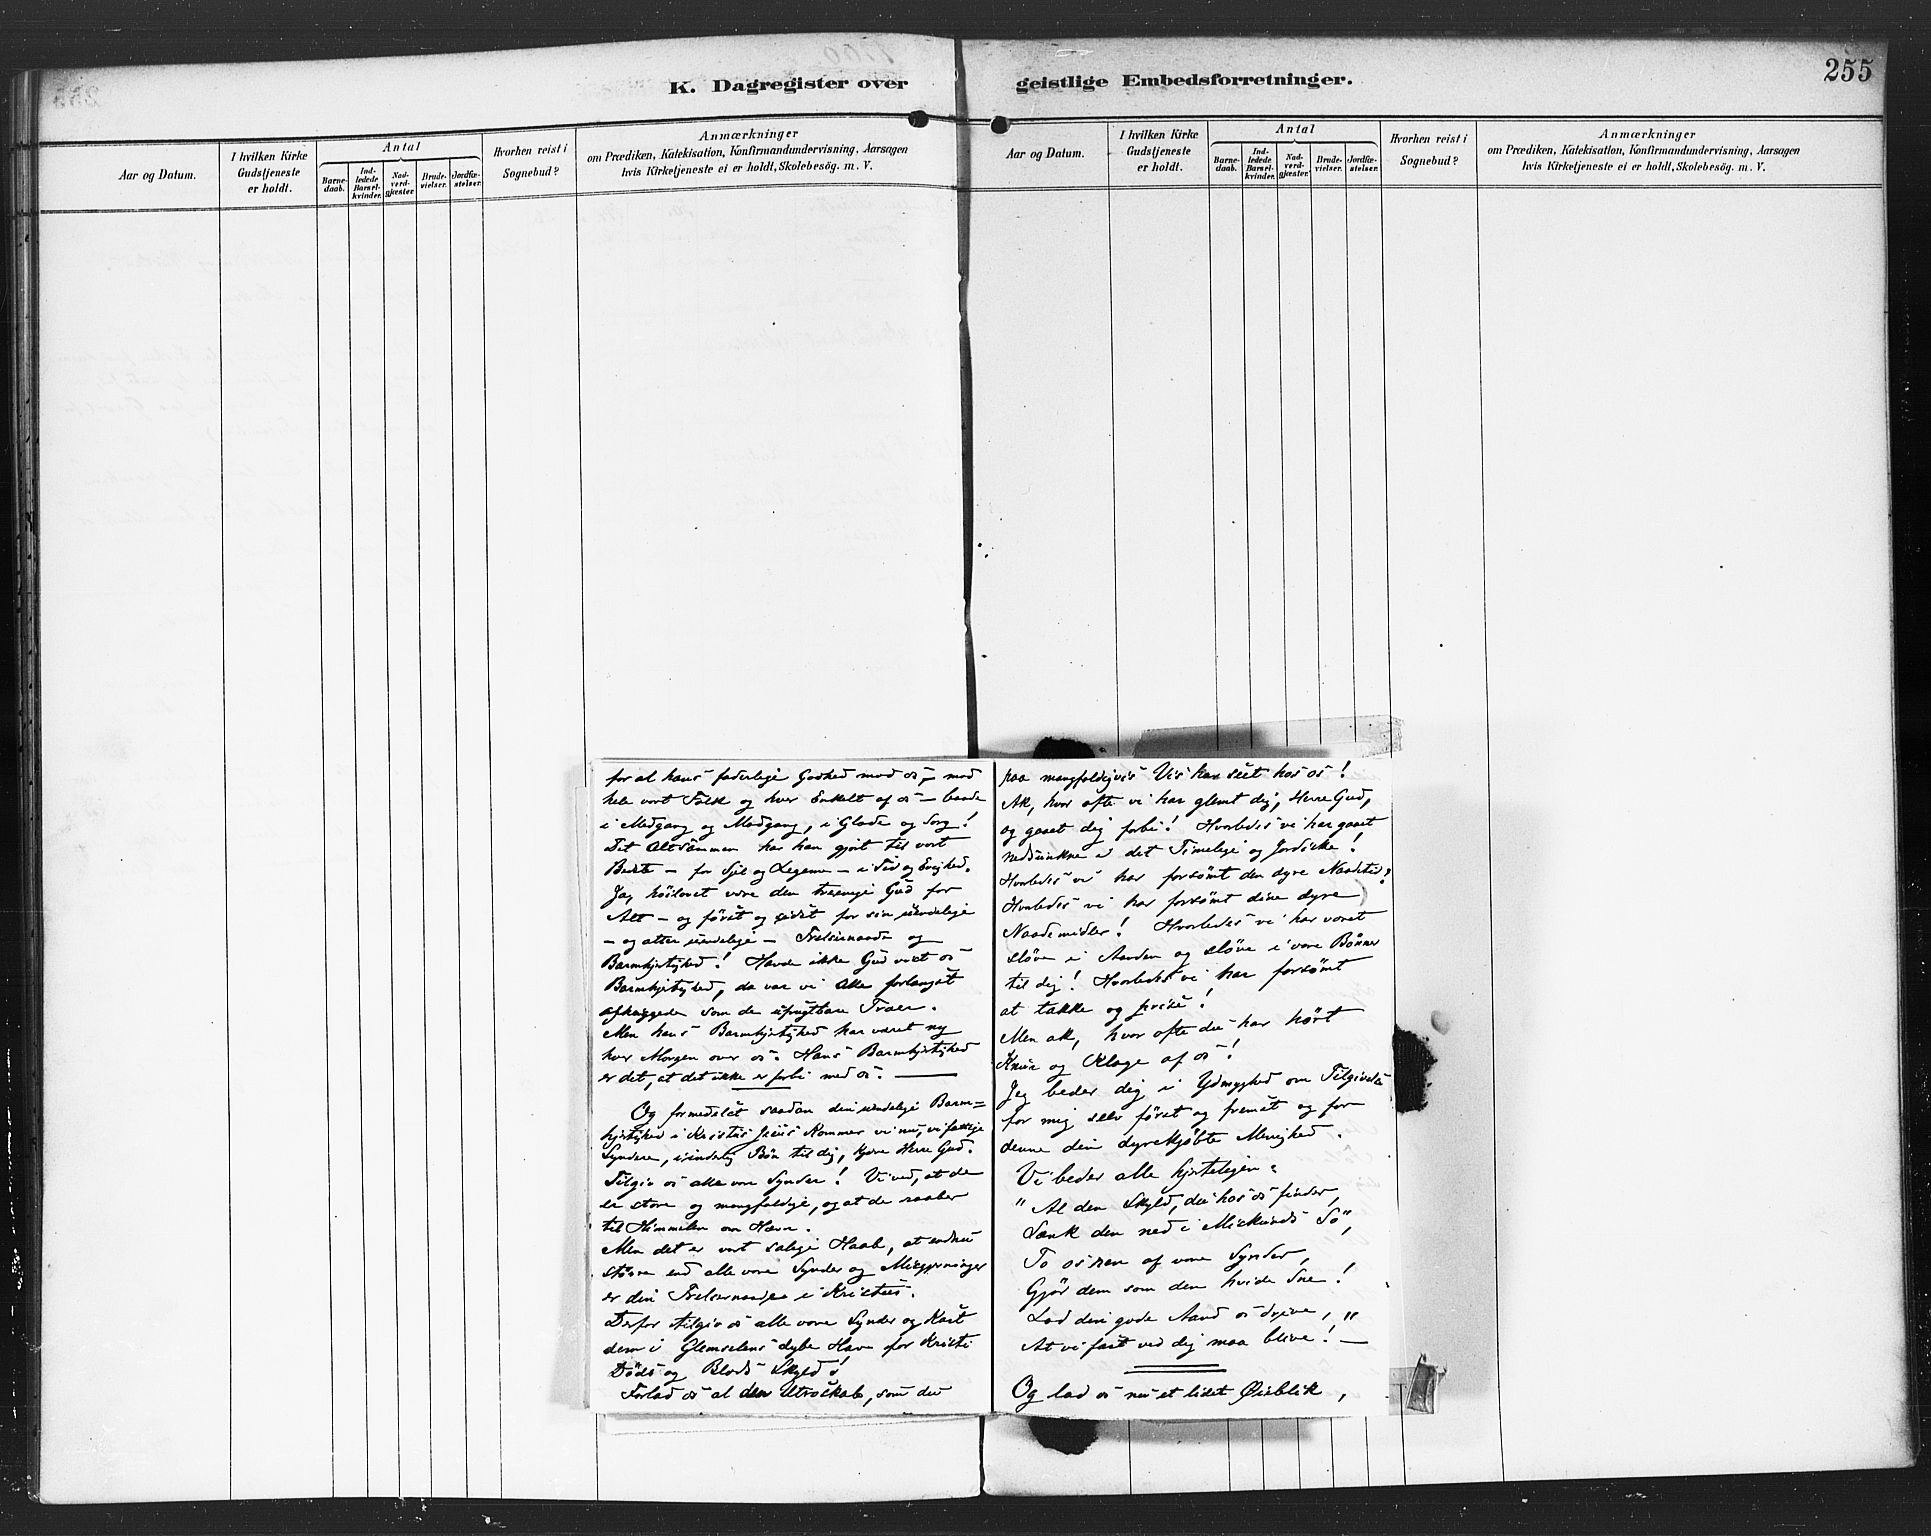 K. Dagregister over geistlige Embedsforretninger.
255
Aar og Datum.
I hvilken Kirke
Gudstjeneste
er holdt.
Antal
Barne-
daab.
Ind-
ledede
Barsel-
kvinder.
Nad-
verd-
gjæster.
Brude-
vielser.
Jordfæ-
stelser.
Hvorhen reist i
Sognebud?
Anmærkninger
om Prædiken, Katekisation, Konfirmandundervisning, Aarsagen
hvis Kirketjeneste ei er holdt, Skolebesög. m. V.
Aar og Datum.
I hvilken Kirke
Gudstjeneste
er holdt.
Antal
Barne-
daab.
Ind-
ledede
Barsel-
kvinder.
Nad-
verd-
gjæster.
Brude-
vielser.
Jordfæ-
stelser.
Hvorhen reist i
Sognebud?
Anmærkninger
om Prædiken, Katekisation, Konfirmandundervisning, Aarsagen
hvis Kirketjeneste ei er holdt, Skolebesög. m. V.
for al hans faderlige Godhed mod os, – mod
hele vort Folk og hver Enkelt af os – baade
i Medgang og Modgang, i Glæde og Sorg!
Det Altsammen har han gjort til vort
Bedste – for Sjel og Legeme – i Tid og Evighed.
Ja, höilovet være den treenige Gud for
Alt – og först og sidst for sin uendelige
– og atter uendelige – Frelsernaade og
Barmhjertighed! Havde ikke Gud vist os
Barmhjertighed, da var vi Alle forlængst
afhuggede som de ufrugtbare Træer.
Men hans Barmhjertighed har været ny
hver Morgen over os. Hans Barmhjertighed
er det, at det ikke er forbi med os. –
Og formedelst saadan din uendelige Barm=
hjertighed i Kristus Jesus kommer vi nu, vi fattige
Syndere, i inderlig Bön til dig, kjære Herre Gud.
Tilgiv os alle vore Synder! Vi ved, at de
er store og mangfoldige, og at de raaber
til Himmelen om Hævn.
Men det er vort salige Haab, at endnu
större end alle vore Synder og Misgjerninger
er din Frelsernaade i Kristus.
Derfor tilgiv os alle vore Synder og kast
dem i Glemselens dybe Hav for Kristi
Döds og Blods Skyld!
Forlad os al den Utroskab, som du
paa mangfoldigvis Vis har seet hos os!
Ak, hvor ofte vi har glemt dig, Herre Gud,
og gaaet dig forbi! Hvorledes vi har gaaet
nedsunkne i det Timelige og Jordiske!
Hvorledes vi har forsömt den dyre Naadetid?
Hvorledes vi har forsömt dine dyre
Naademidler! Hvorledes vi har været
slöve i Aanden og slöve i vore Bönner
til dig! Hvorledes vi har forsömt
at takke og prise!
Men ak, hvor ofte du har hört
Knur og Klage af os!
Jeg beder dig i Ydmyghed om Tilgivelse
for mig selv först og fremst og for
denne din dyrekjöbte Menighed.
Vi beder alle hjerteligen:
"Al den Skyld, du hos os finder,
Sænk den ned i Miskunds Sö",
To os ren af vore Synder,
Gjör dem som den hvide Sne!
Lad din gode Aand os drive,
At vi fast ved dig maa blive!" –
Og lad os nu et lidet Öieblik,